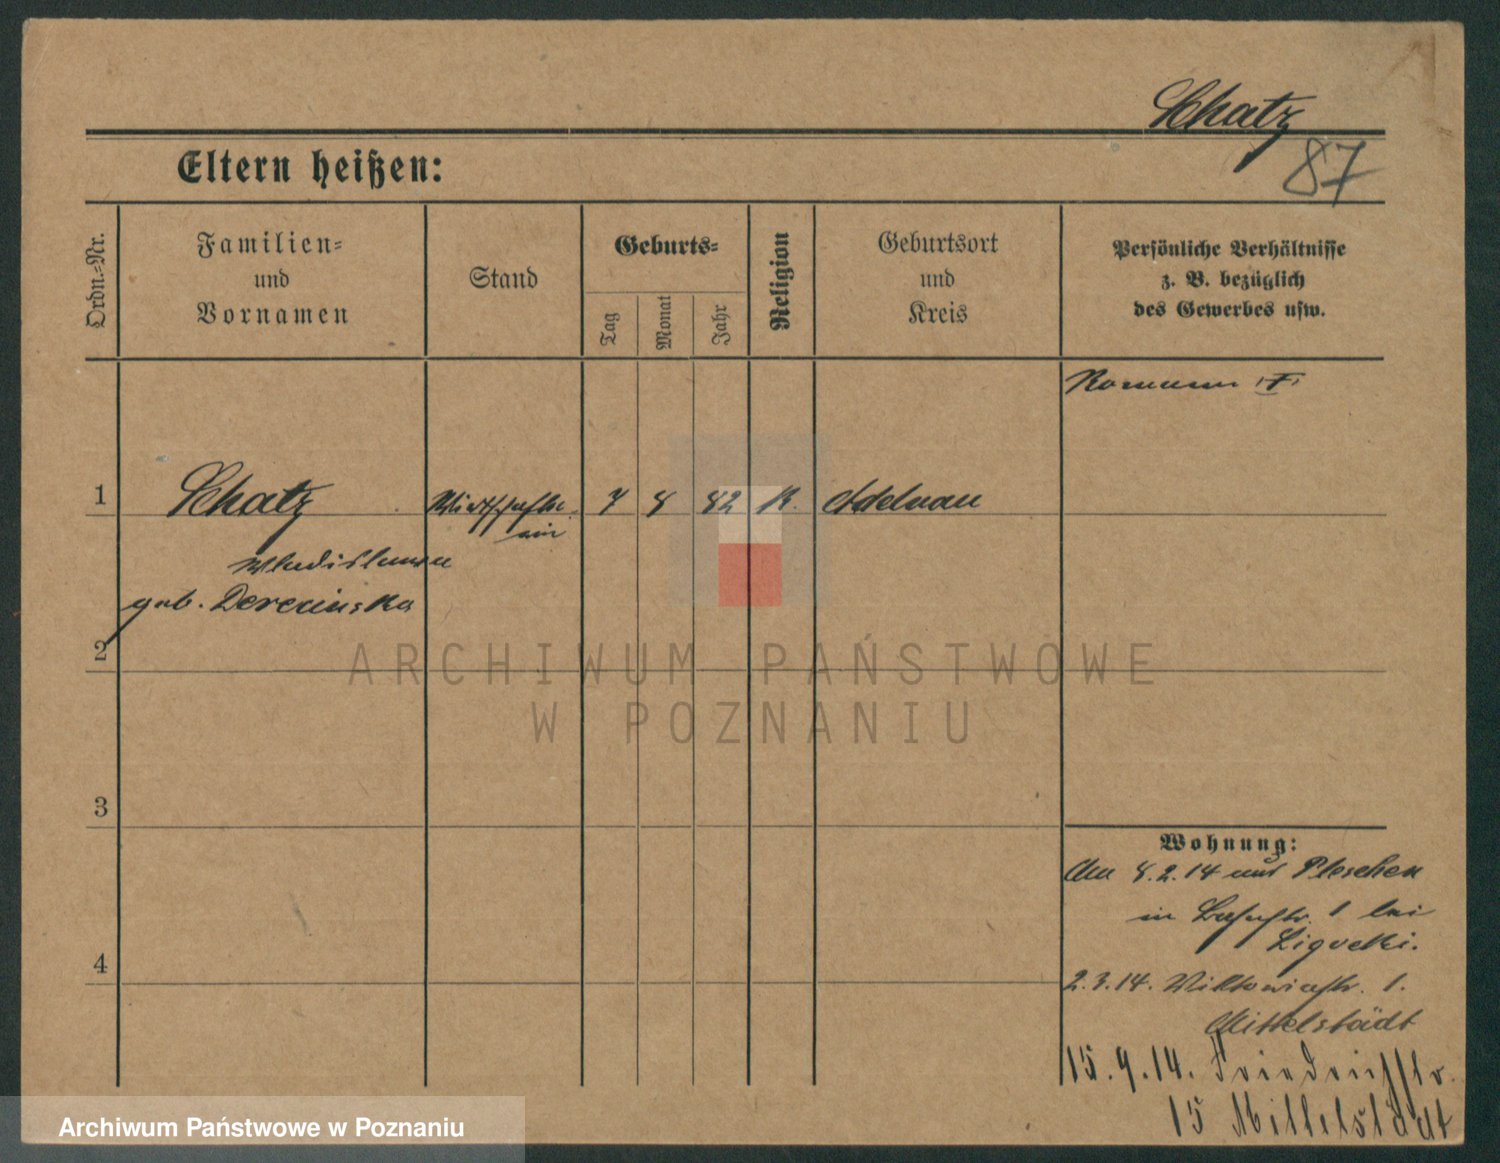 Schatz
87
Eltern heißen:
Ordn.=Nr.
Familien=
und
Vornamen
Stand
Geburts=
Tag
Monat
Jahr
Religion
Geburtsort
und
Kreis
Persönliche Verhältnisse
z. B. bezüglich
des Gewerbes usw.
1
Schatz
7 8 82 K. Adelnau
Wladislawa
geb.
2
ARCHIWUM PAŃSTWOWE
W POZNANIU
3
Wohnung:
Am 8.2.14 aus Pleschen
in 1 bei
4
2.3.14. Viktoriastr. 1.
Mittelstädt
15.9.14. Friedrichstr.
15 Mittelstädt
Archiwum Państwowe w Poznaniu